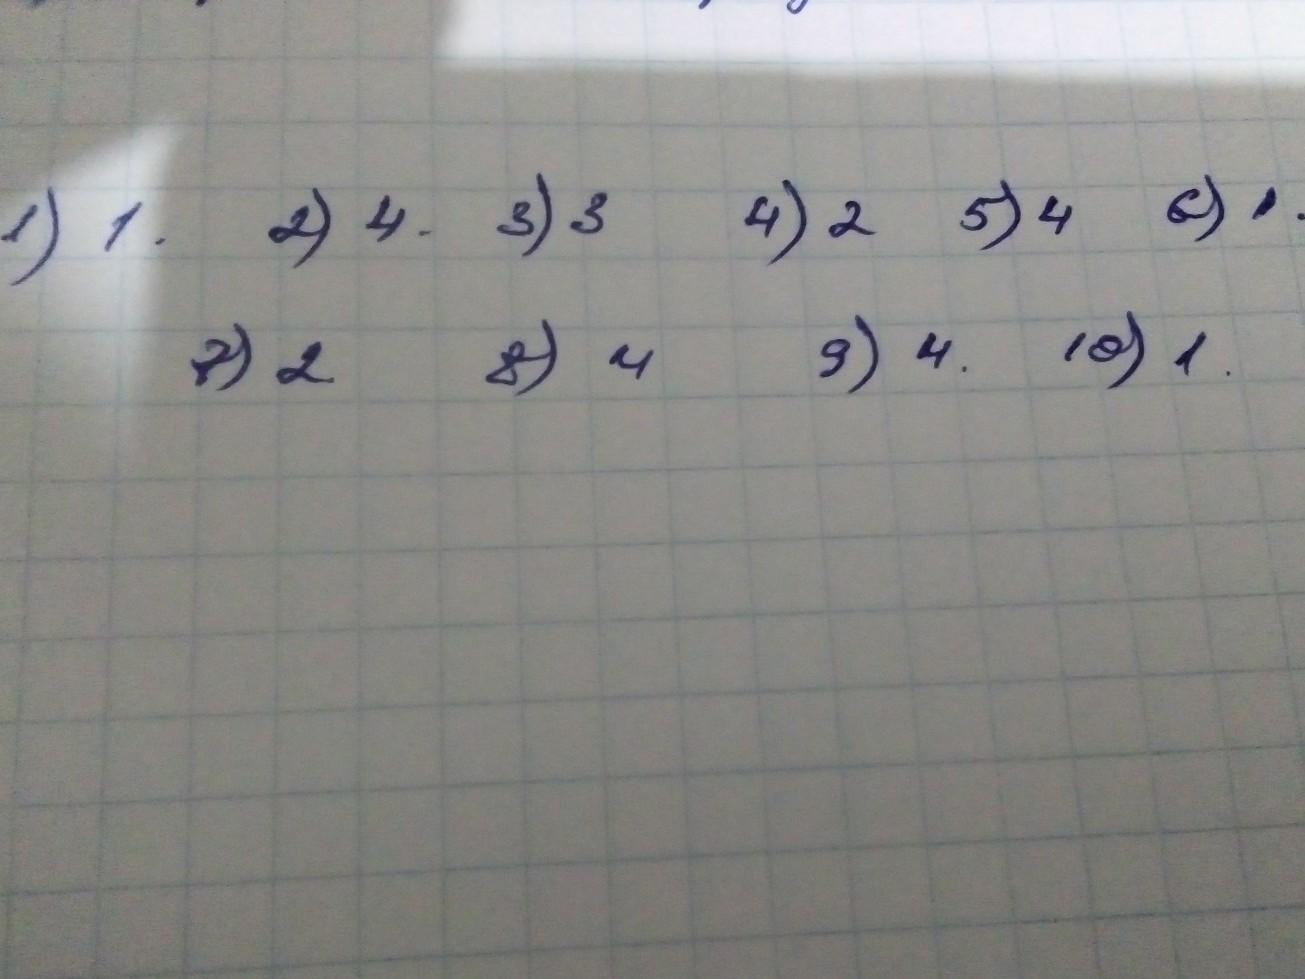 1) 1. 2) 4. 3) 3 4) 2 5) 4 6) 1.
7) 2 8) 4 9) 4. 10) 1.